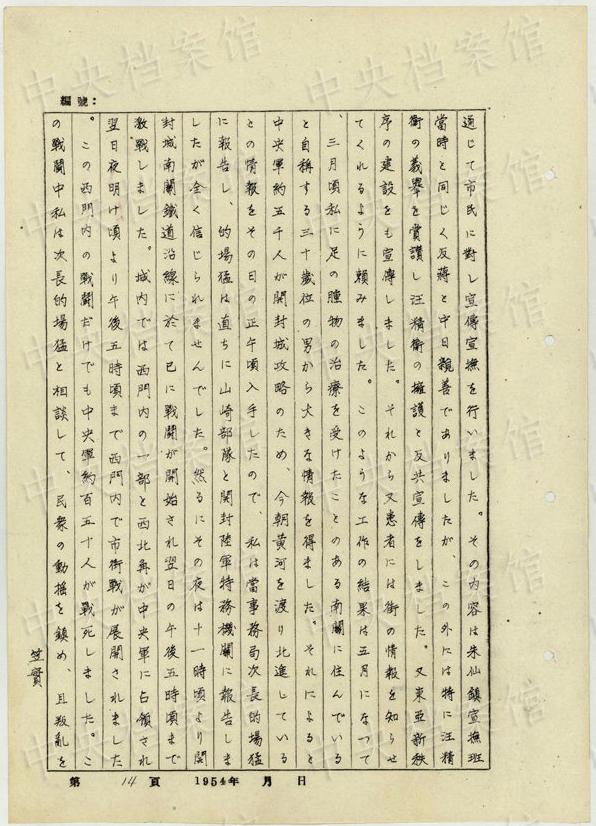 編號：
通じて市民に對し宣傳宣撫を行いました。その内容は朱仙鎮宣撫班
當時と同じく反蔣と中日親善でありましたが、この外には特に汪精
衛の義舉を賞讃し汪精衛の擁護と反共宣傳をしました。又東亜新秩
序の建設をも宣傳しました。それから又患者には街の情報を知らせ
てくれるように頼みました。このような工作の結果は五月になつて
、三月頃私に足の腫物の治療を受けたことのある南關に住んでいる
と自稱する三十歳位の男から大きな情報を得ました。それによると
中央軍約五千人が開封城攻略のため、今朝黄河を渡り北進している
との情報をその日の正午頃入手したので、私は當事務局次長的場猛
に報告し、的場猛は直ちに山崎部隊と開封陸軍特務機關に報告しま
したが全く信じられませんでした。然るにその夜は十一時頃より開
封城南關鐵道沿線に於て已に戰闘が開始され翌日の午後五時頃まで
激戰しました。城内では西門内の一部と西北角が中央軍に占領され
翌日夜明け頃より午後五時頃まで西門内で市街戰が展開されました
。この西門内の戰闘だけでも中央軍約百五十人が戰死しました。こ
の戰闘中私は次長的場猛と相談して、民衆の動揺を鎮め、且叛乱を
笠實
第 14 頁 1954年 月 日
中央档案馆